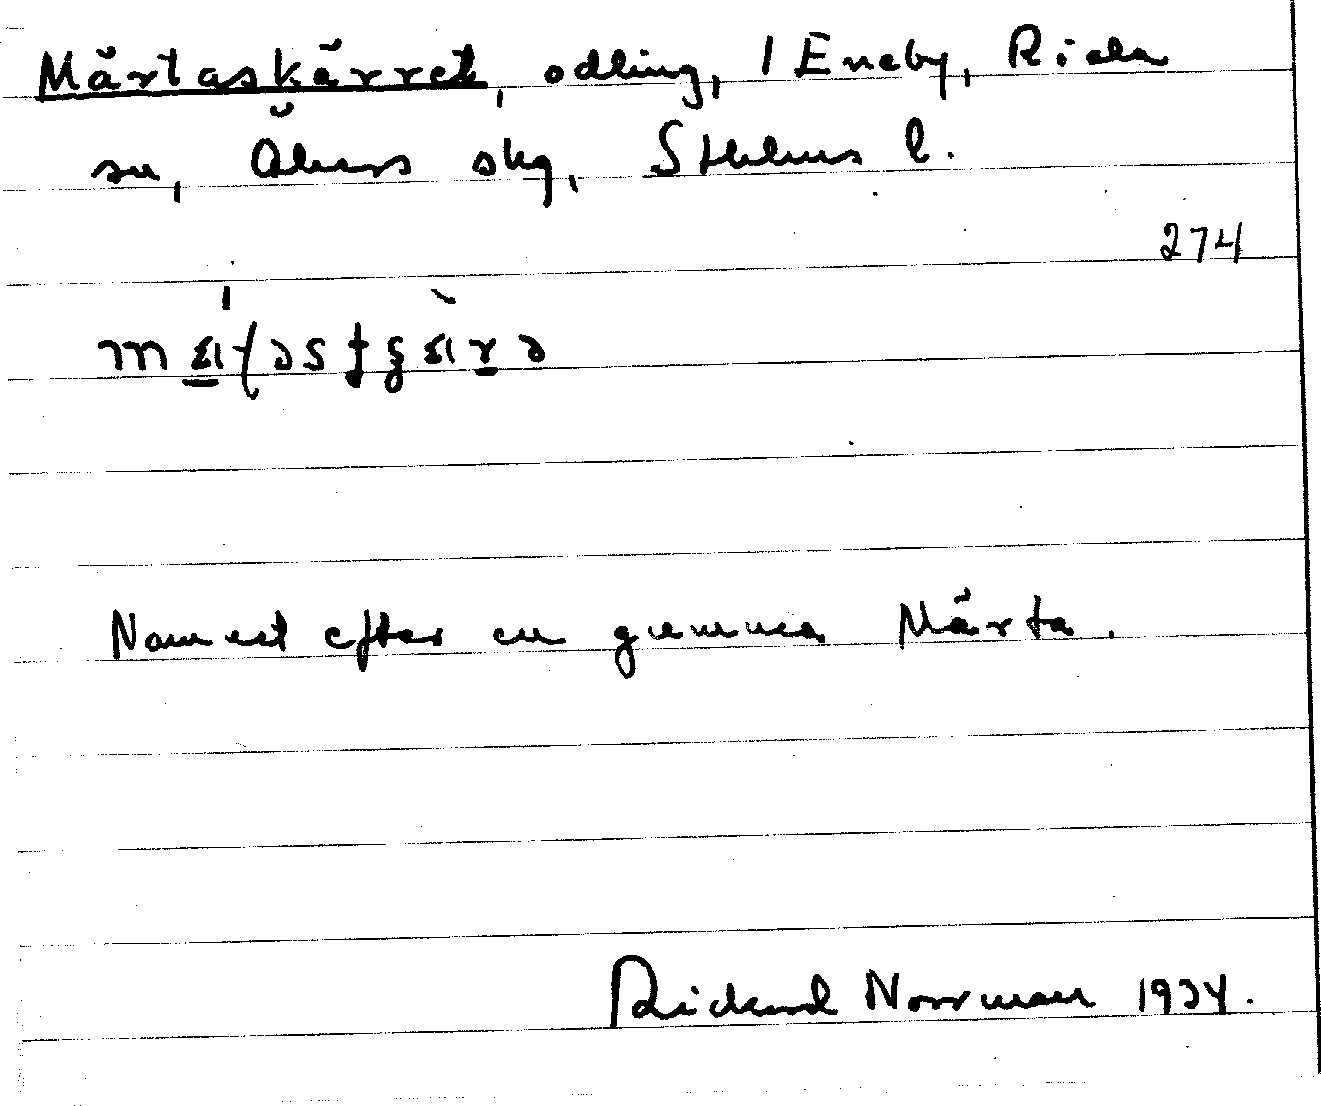 Märtaskärret, odling, 1 Eneby, Riala
sn, Åkers skg, Sthlms l.
274
Namnet efter en gumma Märta.
Rickard Norrman 1934.